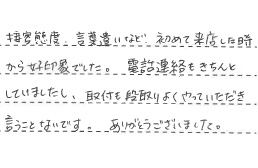 接客態度、言葉遣いなど、初めて来店した時
から好印象でした。電話連絡もきちんと
していましたし、取付も段取りよくやっていただき
言うことないです。ありがとうございました。